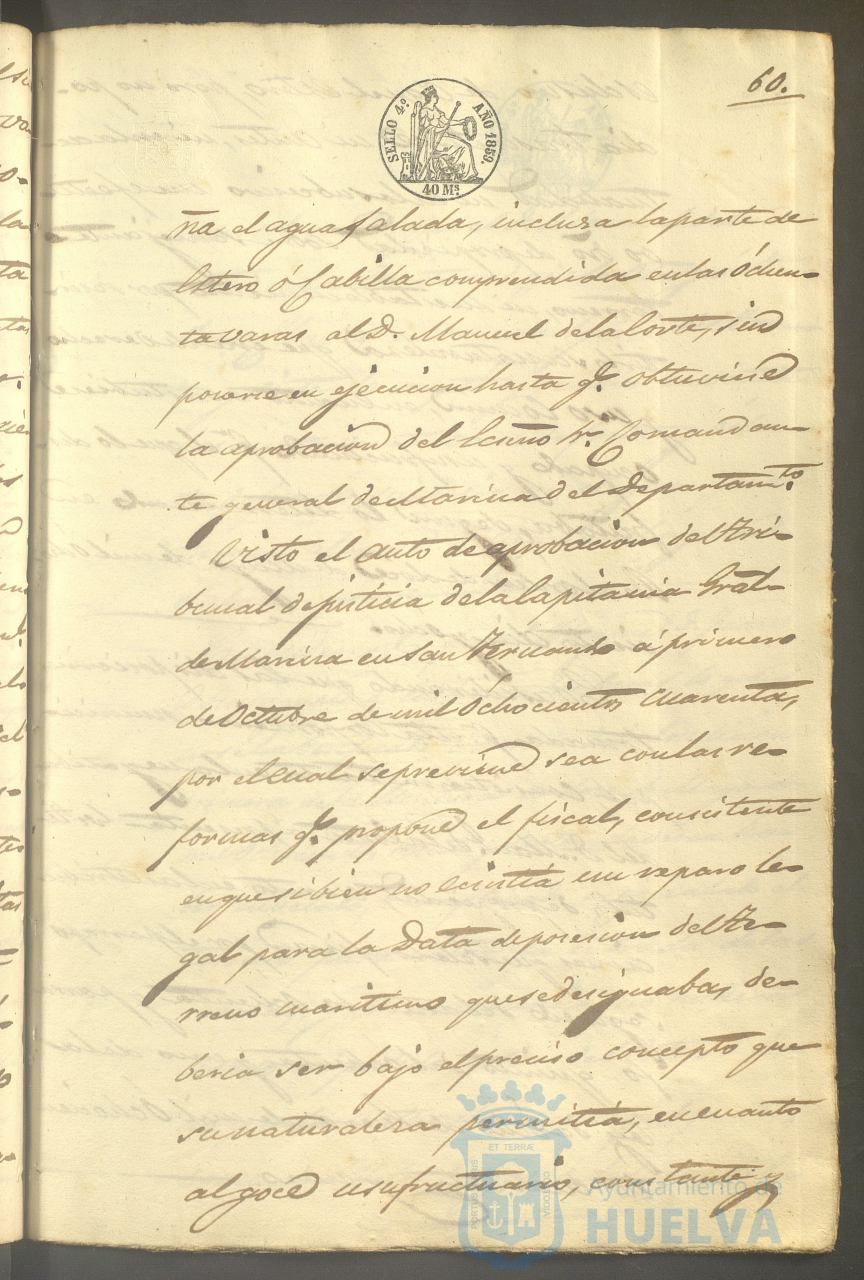 60.
SELLO 4.º AÑO 1859.
40 Ms
ña el agua salada, inclusa la parte de
Estero ó Cabilla comprendida en las óchen-
ta varas al D. Manuel de la Corte, sin
ponerse en ejecucion hasta q.e obtuviese
la aprobacion del Escmo Sr. Comandan-
te general de Marina del Departam.to
Visto el auto de aprobacion del Tri-
bunal de justicia de la Capitania Gral
de Marina en San Fernando á primero
de Octubre de mil óchocientos cuarenta,
por el cual se previene sea con las re-
formas q.e propone el fiscal, consistente
en que si bien no ecsistia un reparo le-
gal para la Data de posesion del te-
rreno maritimo que se designaba, de-
beria ser bajo el preciso concepto que
su naturaleza permitia, en cuanto
al goce usufructuario, constante y
ET TERRÆ
CUSTODIA
Ayuntamiento de
HUELVA